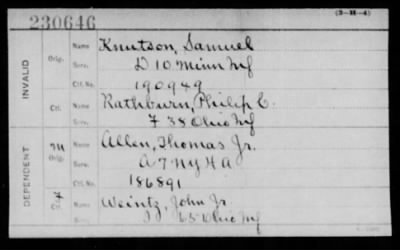 (3-H-4)
230646
INVALID
Orig.
Name Knutson, Samuel
Serv. D 10 Minn Inf
Ctf. No. 190949
Ctf.
Name Rathburn, Philip C.
Serv. F 38 Ohio Inf
DEPENDENT
m
Orig.
Name Allen, Thomas Jr.
Serv. A 7 NY H A
Ctf. No. 186891
Ctf.
Name Weintz, John Jr
Serv. 65 Ohio Inf